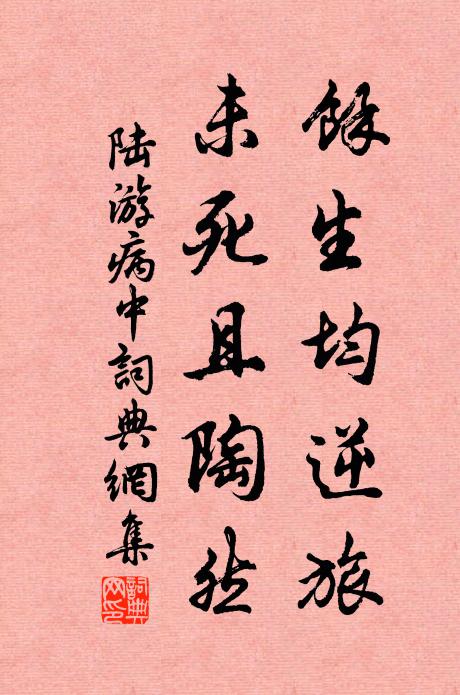 餘生均逆旅
未死且陶然
陸游病中詞典網集
詞典網印